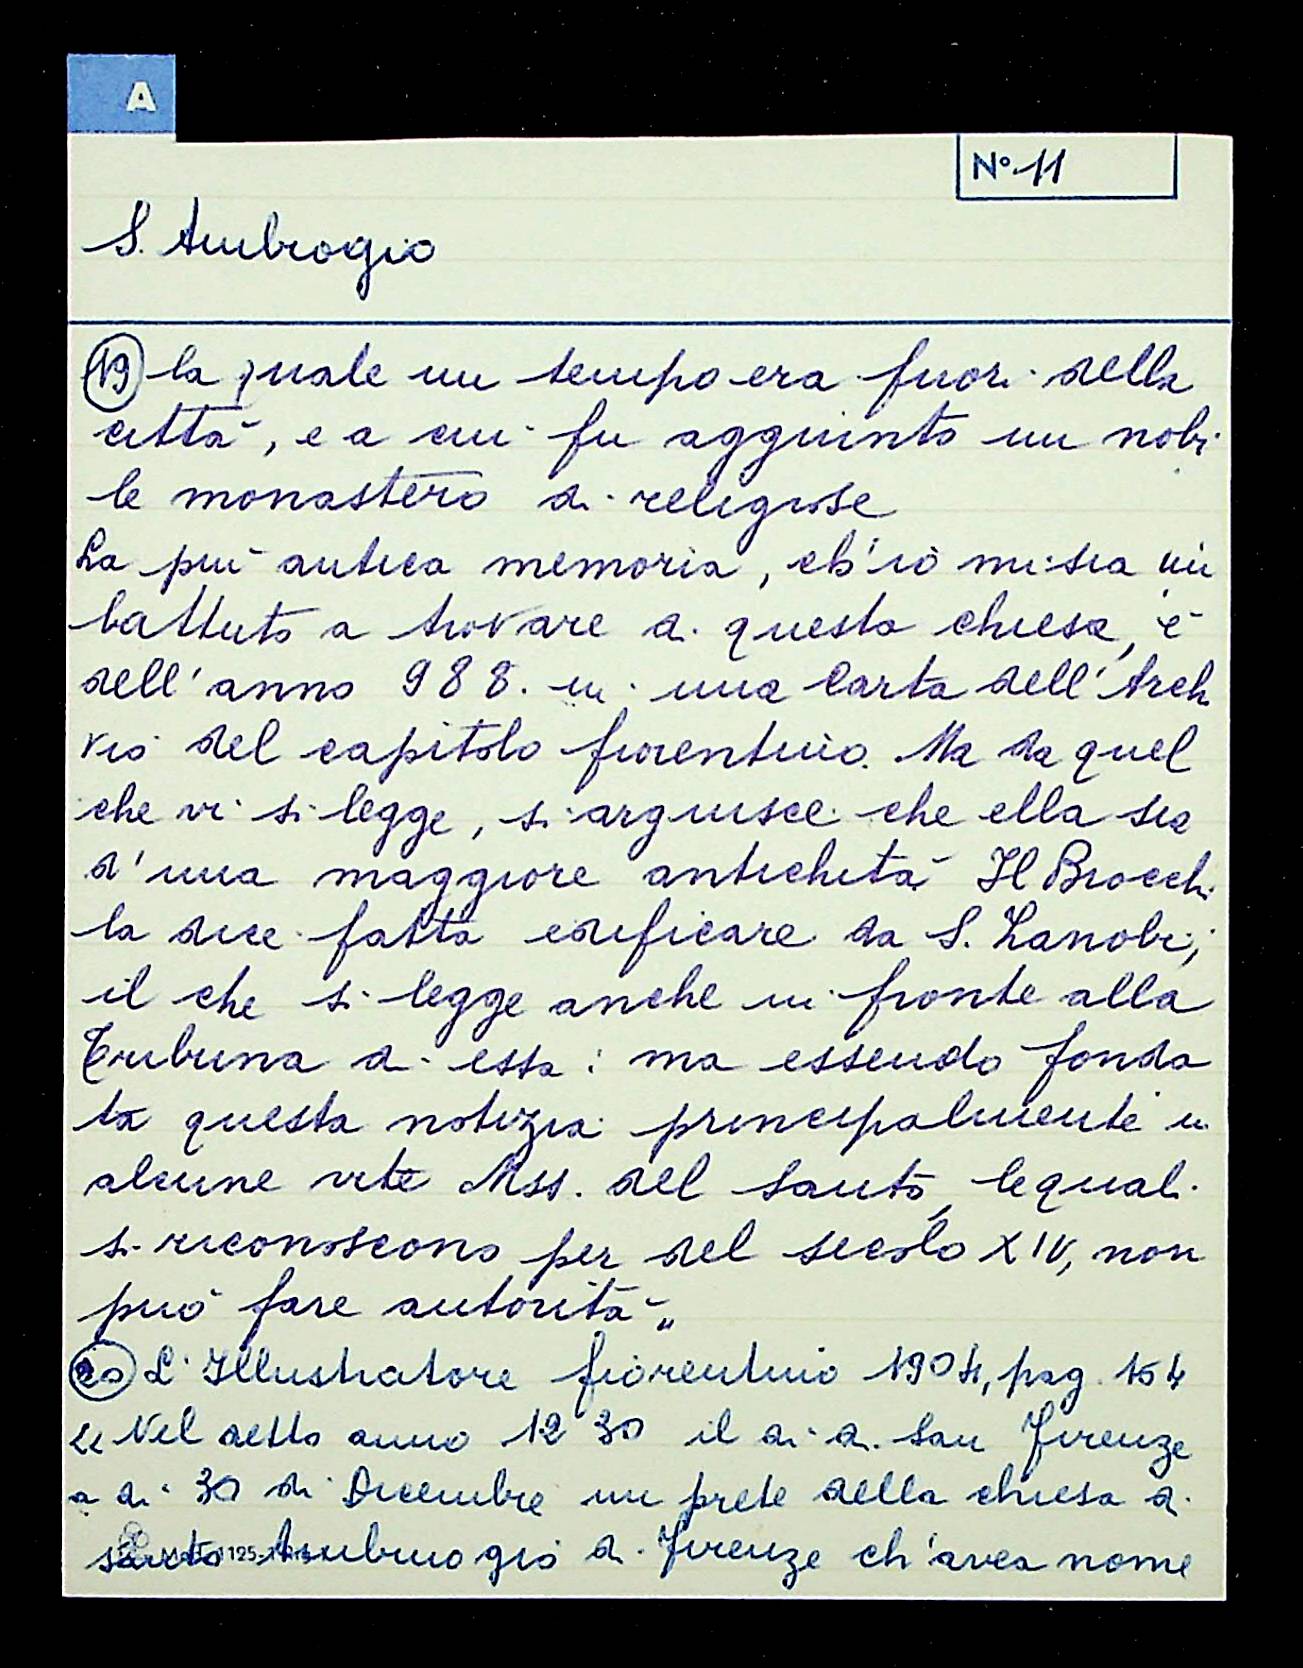 A
N° 11
S. Ambrogio
19 la quale un tempo era fuori della
città, e a cui fu aggiunto un nobi
le monastero di religiose
La più antica memoria, ch'io mi sia im
battuto a trovare di questa chiesa, è
dell'anno 988. in una Carta dell'Archi
vio del capitolo fiorentino. Ma da quel
che vi si legge, si arguisce che ella sia
d'una maggiore antichità Il Brocchi
la dice fatta edificare da S. Zanobi;
il che si legge anche in fronte alla
Tribuna di essa: ma essendo fonda
ta questa notizia principalmente in
alcune vite Mss. del Santo, le quali
si riconoscono per del secolo XIV, non
può fare autorità„
20 L'Illustratore fiorentino 1904, pag. 154
"Nel detto anno 1230 il dì di San Firenze
a dì 30 di Dicembre un prete della chiesa di
santo Ambruogio di Firenze ch'avea nome